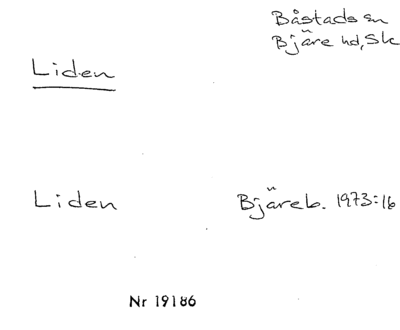 Båstads sn
Bjäre hd, Sk
Liden
Liden Bjäreb. 1973:16
Nr 19186